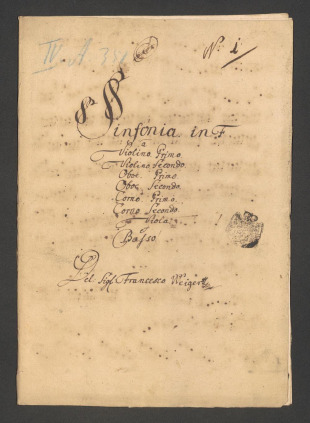 IV A 35
No: 1
Sinfonia in F
a
Violino Primo
Violino Secondo
Oboe Primo
Oboe Secondo
Corno Primo
Corno Secondo
Viola
e
Basso
Del Sigl Francesco Weigert